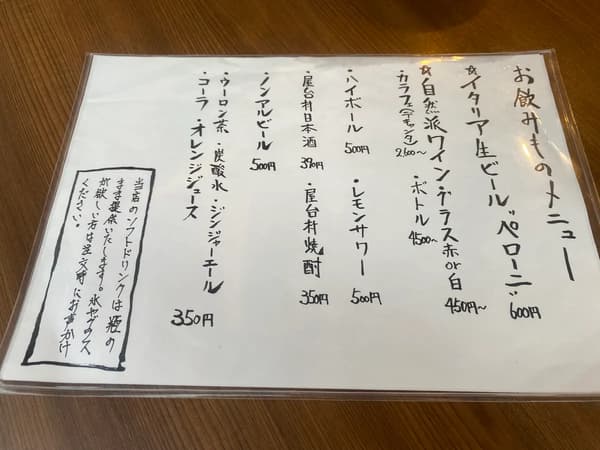 お飲みものメニュー
☆イタリア生ビール"ペローニ" 600円
☆自然派ワイン・グラス赤or白 450円〜
・カラフェ(デキャンタ) 2,600〜 ・ボトル 4500〜
・ハイボール 500円 ・レモンサワー 500円
・屋台村日本酒 390円 ・屋台村焼酎 350円
・ノンアルビール 500円
・ウーロン茶・炭酸水・ジンジャーエール
・コーラ・オレンジジュース 350円
当店のソフトドリンクは瓶の
まま提供いたします。氷やグラス
が欲しい方は注文時にお声かけ
ください。